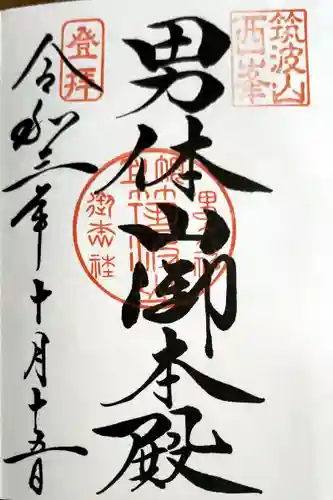 筑波山
西峯
男体山御本殿
登拝
令和三年十月十五日